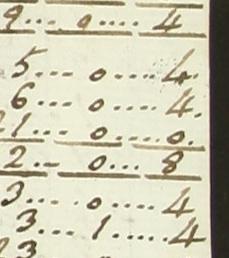 9... 0.... 4
5... 0.... 4.
6... 0.... 4.
1... 0.... 0.
2... 0... 8
3.... 0.... 4
3... 1..... 4